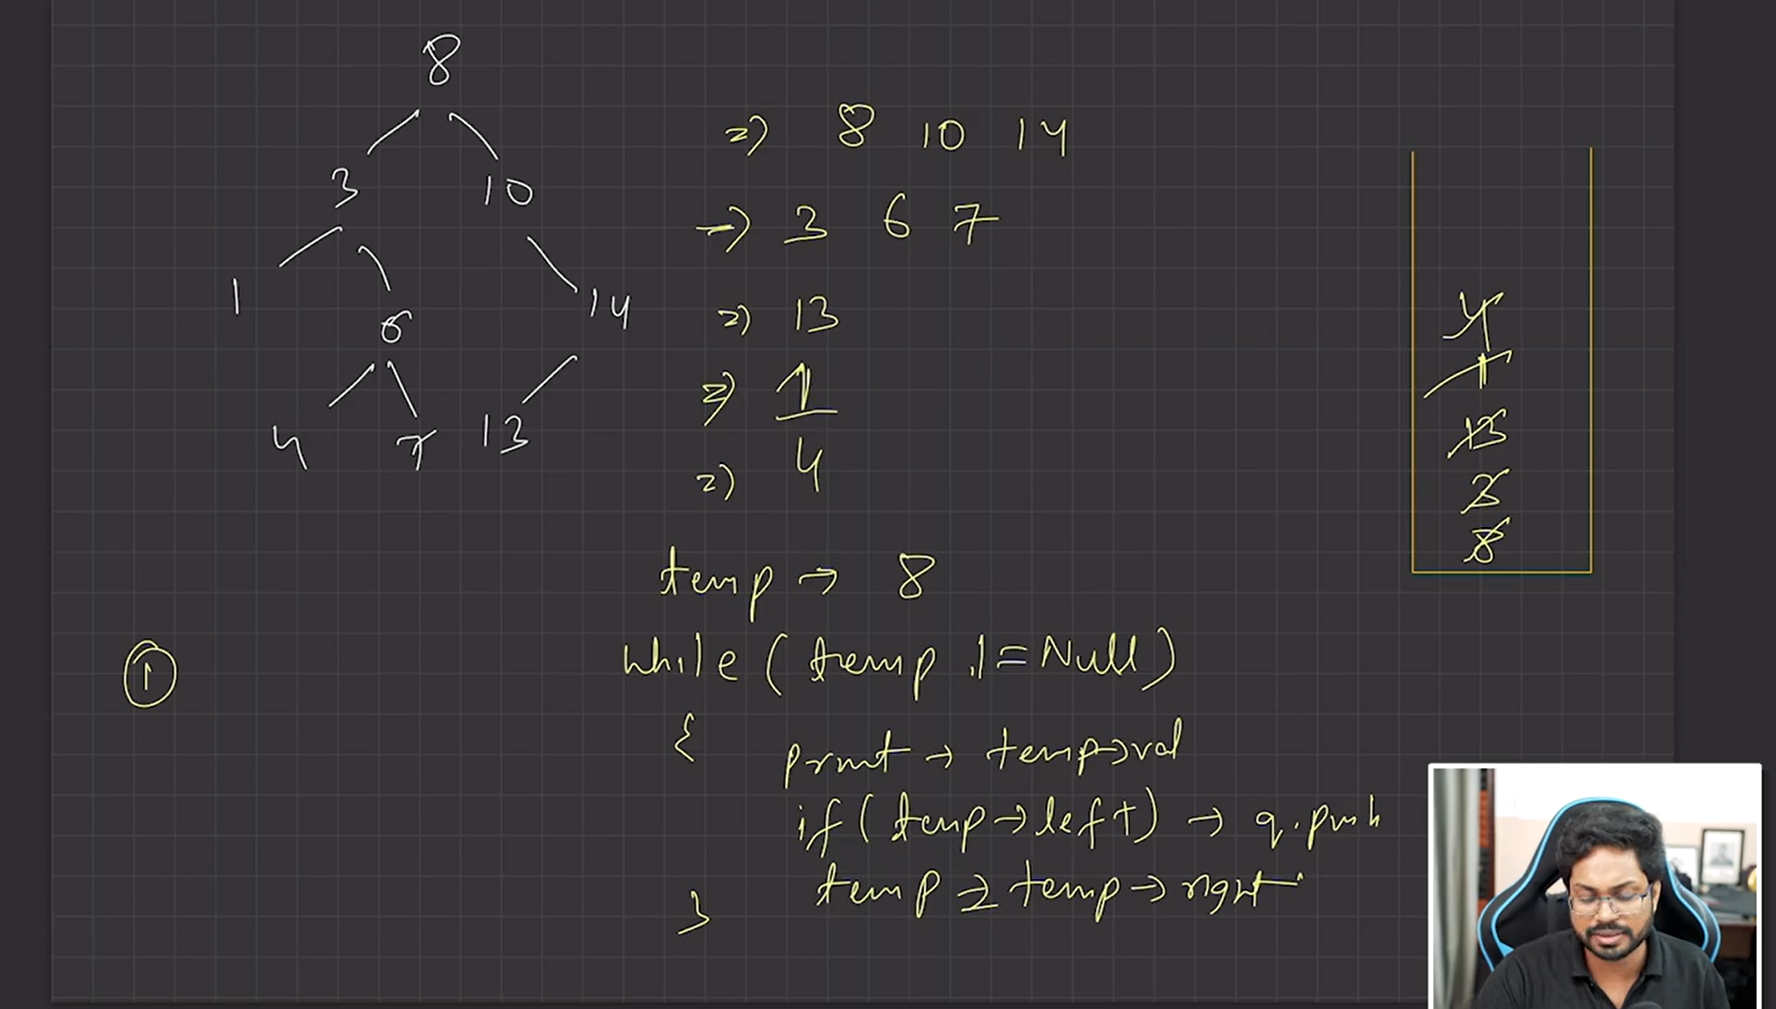 8
3 10
1 6 14
4 7 13
=> 8 10 14
-> 3 6 7
=> 13
=> 1
=> 4
4
1
13
3
8
temp -> 8
while ( temp != Null )
{ print -> temp->val
if ( temp->left ) -> q.push
temp = temp->right
}
1